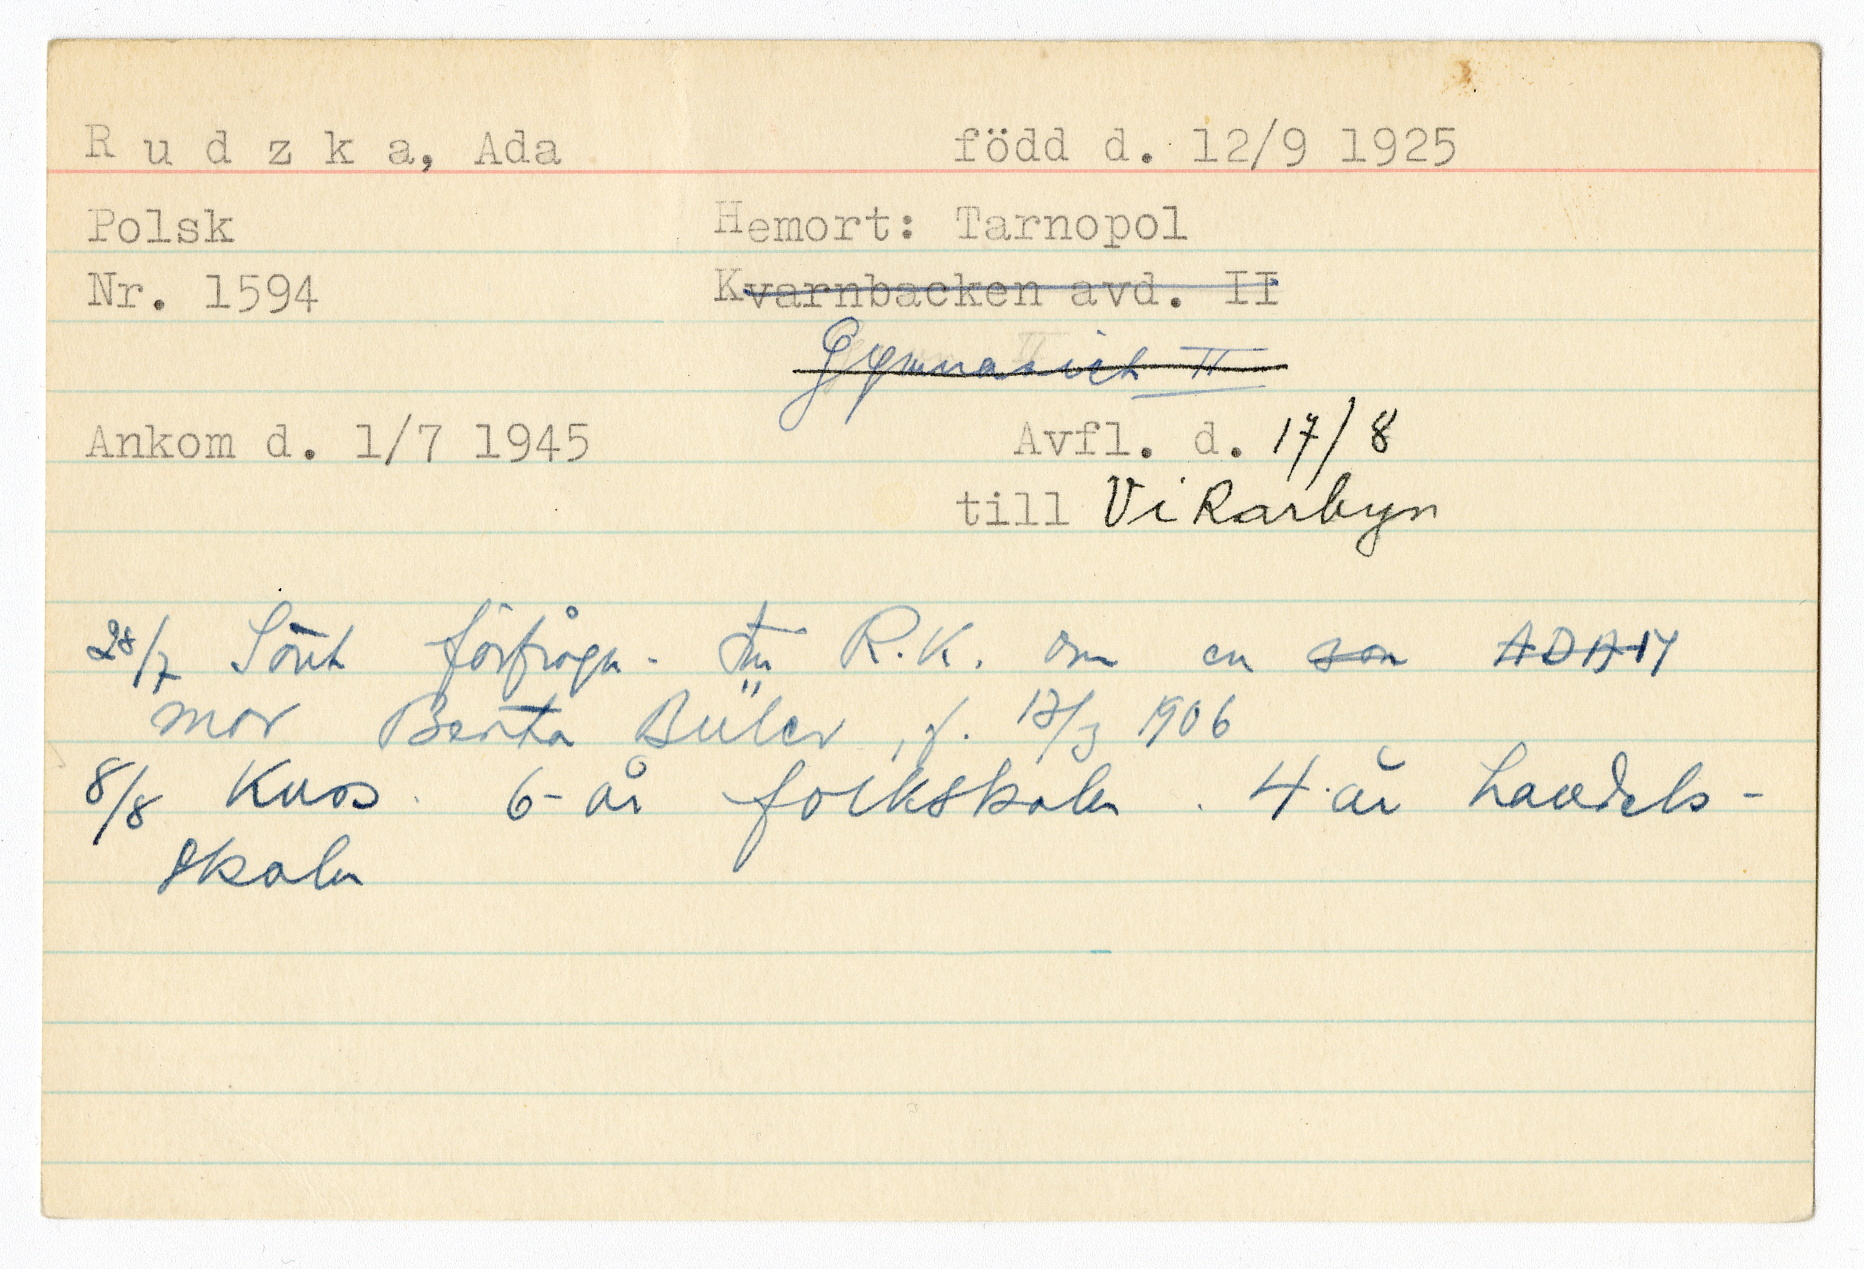 Rudzka, Ada född d. 12/9 1925
Polsk Hemort: Tarnopol
Nr. 1594 Kvarnbacken avd. II
Gymnasiet II
Ankom d. 1/7 1945 Avfl. d. 17/8
till Vikarbyn
28/7 Sönt förfrågn. till R.K. om en son ADAM
mor Berta Büler, f. 17/3 1906
8/8 Kurs. 6-år folkskolan. 4 år handels-
skolan